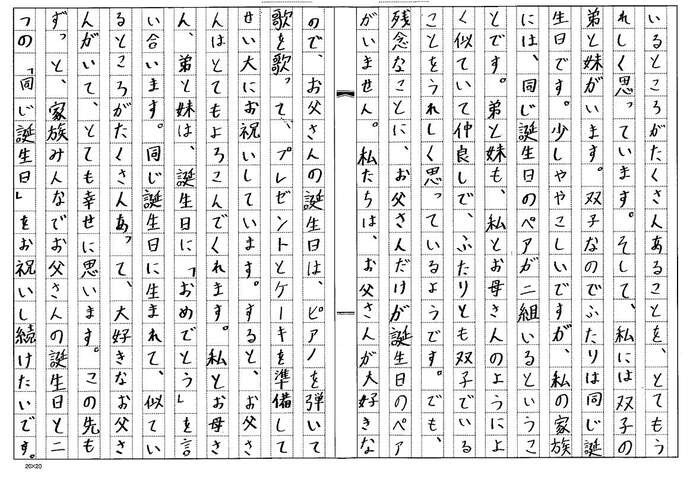 いるところがたくさんあることを、とてもう
れしく思っています。そして、私には双子の
弟と妹がいます。双子なのでふたりは同じ誕
生日です。少しややこしいですが、私の家族
には、同じ誕生日のペアが二組いるというこ
とです。弟と妹も、私とお母さんのようによ
く似ていて仲良しで、ふたりとも双子でいる
ことをうれしく思っているようです。でも、
残念なことに、お父さんだけが誕生日のペア
がいません。私たちは、お父さんが大好きな
ので、お父さんの誕生日は、ピアノを弾いて
歌を歌って、プレゼントとケーキを準備して
せい大にお祝いしています。すると、お父さ
んはとてもよろこんでくれます。私とお母さ
ん、弟と妹は、誕生日に「おめでとう」を言
い合います。同じ誕生日に生まれて、似てい
るところがたくさんあって、大好きなお父さ
んがいて、とても幸せに思います。この先も
ずっと、家族みんなでお父さんの誕生日と二
つの「同じ誕生日」をお祝いし続けたいです。
20×20